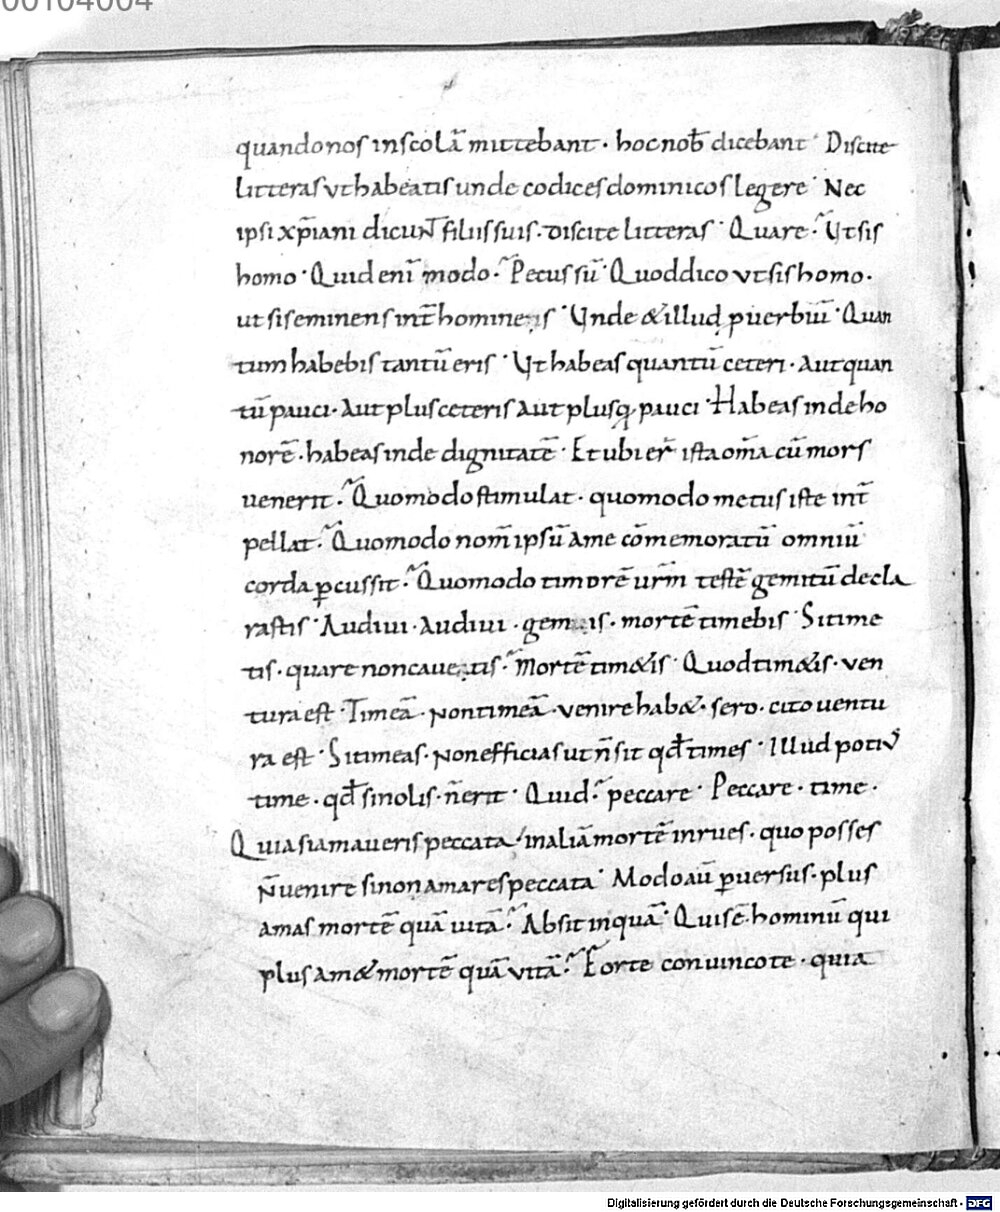 00104004
quando nos in scolā mittebant · hoc nob̄ dicebant · Discite
litteras vt habeatis unde codices dominicos legere · Nec
ipsi xp̄iani dicun̄t filiis suis · discite litteras · Quare · Ut sis
homo · Quid eni̅ modo · Pecus sū · Quod dico vt sis homo ·
ut sis eminens int̄ homines · Unde & illud p̱uerbiū · Quan
tum habebis tantū eris · Ut habeas quantū ceteri · Aut quan
tū pauci · Aut plus ceteris aut plusq; pauci · Habeas inde ho
norē · habeas inde dignitatē · Et ubi er̄ ista om̄a cū mors
venerit · Quomodo stimulat · quomodo metus iste int̄
pellat · Quomodo nom̄ ipsū a me cōmemoratū omniū
corda ꝑcussit · Quomodo timorē ur̄m testē gemitū decla
rastis · Audiui · Audiui · gemitis · mortē timebis · Si time
tis · quare non cauetis · Mortē tim&is · Quod tim&is · ven
tura est · Timeā · Non timeā · venire hab& · sero · cito uentu
ra est · Si timeas · Non efficias ut n̄ sit qđ times · Illud potiꝰ
time · qđ si nolis · n̄ erit · Quid · peccare · Peccare · time ·
Quia si amaueris peccata / in aliā mortē inrues · quo posses
N̄ uenire si non amares peccata · Modo aū ꝑuersus · plus
amas mortē quā uitā · Absit inquā · Quis ē hominū qui
plus am& mortē quā vitā · Forte conuinco te · quia
Digitalisierung gefördert durch die Deutsche Forschungsgemeinschaft - DFG